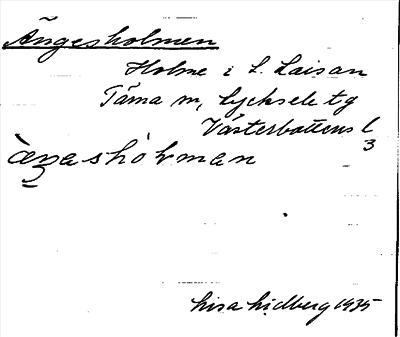 Ångesholmen
Holme i L. Laisan
Tärna sn, Lycksele tg
Västerbottens l
3
Lisa Lidberg 1935